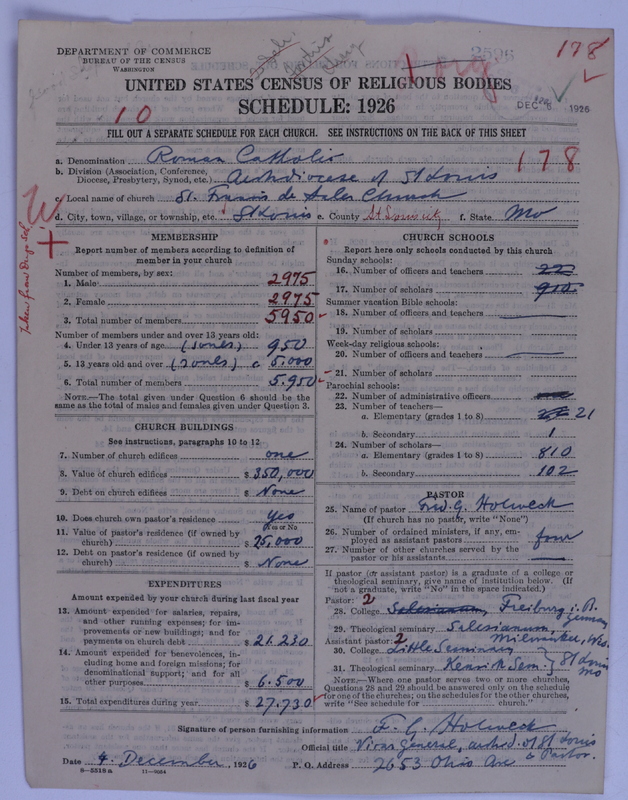 DEPARTMENT OF COMMERCE
BUREAU OF THE CENSUS
WASHINGTON
2595
178
DEC 6 1926
UNITED STATES CENSUS OF RELIGIOUS BODIES
SCHEDULE: 1926
10
FILL OUT A SEPARATE SCHEDULE FOR EACH CHURCH. SEE INSTRUCTIONS ON THE BACK OF THIS SHEET
a. Denomination Roman Catholic
178
b. Division (Association, Conference,
Diocese, Presbytery, Synod, etc.) Archdiocese of St Louis
c. Local name of church St. Francis de Sales Church
d. City, town, village, or township, etc. St Louis e. County St Louis city f. State Mo
MEMBERSHIP
Report number of members according to definition of
member in your church
Number of members, by sex:
1. Male 2975
2. Female 2975
3. Total number of members 5950
Number of members under and over 13 years old:
4. Under 13 years of age (souls) 950
5. 13 years old and over (souls) 5.000
6. Total number of members 5.950
NOTE.—The total given under Question 6 should be the
same as the total of males and females given under Question 3.
CHURCH BUILDINGS
See instructions, paragraphs 10 to 12
7. Number of church edifices one
8. Value of church edifices $ 350,000
9. Debt on church edifices $ None
10. Does church own pastor's residence yes
Yes or No
11. Value of pastor's residence (if owned by
church) $ 25,000
12. Debt on pastor's residence (if owned by
church) $ None
EXPENDITURES
Amount expended by your church during last fiscal year
13. Amount expended for salaries, repairs,
and other running expenses; for im-
provements or new buildings; and for
payments on church debt $ 21.230
14. Amount expended for benevolences, in-
cluding home and foreign missions; for
denominational support; and for all
other purposes $ 6.500
15. Total expenditures during year $ 27.730
CHURCH SCHOOLS
Report here only schools conducted by this church
Sunday schools:
16. Number of officers and teachers 22
17. Number of scholars 910
Summer vacation Bible schools:
18. Number of officers and teachers
19. Number of scholars
Week-day religious schools:
20. Number of officers and teachers
21. Number of scholars
Parochial schools:
22. Number of administrative officers
23. Number of teachers—
a. Elementary (grades 1 to 8) 21
b. Secondary 1
24. Number of scholars—
a. Elementary (grades 1 to 8) 810
b. Secondary 102
PASTOR
25. Name of pastor Fred. G. Holweck
(If church has no pastor, write "None")
26. Number of ordained ministers, if any, em-
ployed as assistant pastors four
27. Number of other churches served by the
pastor or his assistants
If pastor (or assistant pastor) is a graduate of a college or
theological seminary, give name of institution below. (If
not a graduate, write "No" in the space indicated.)
Pastor: 2
28. College Salesianum, Freiburg i. B. Germany
29. Theological seminary Salesianum, Milwaukee, Wis.
Assistant pastor: 2
30. College Little Seminary
31. Theological seminary Kenrick Sem. St Louis Mo
NOTE.—Where one pastor serves two or more churches,
Questions 28 and 29 should be answered only on the schedule
for one of the churches; on the schedules for the other churches,
write "See schedule for ________ church."
Signature of person furnishing information F. G. Holweck
Official title Vicar General, archd. of St Louis & Pastor.
Date 4. December, 1926 P. O. Address 2653 Ohio Ave
8—5518a 11—9034